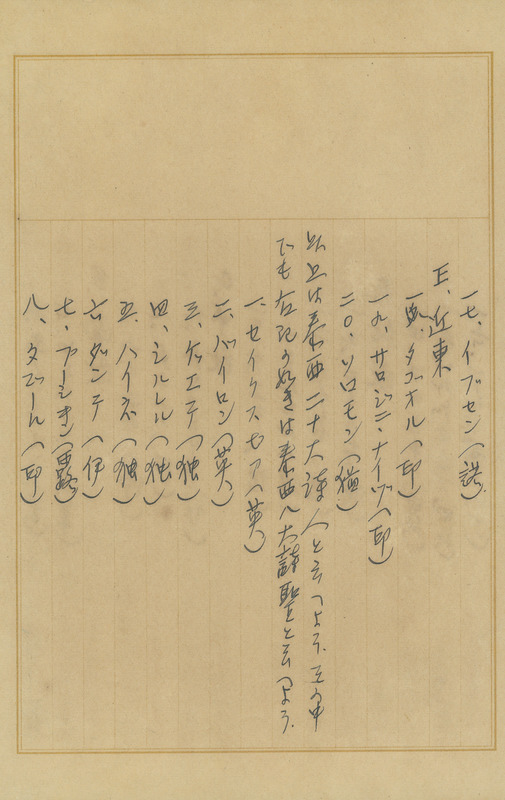 一七、イブセン(諾)
五、近東
一八、タゴオル(印)
一九、サロジニ・ナイヅ(印)
二〇、ソロモン(猶)
以上は泰西二十大詩人と云へよう、その中
でも右記の如きは泰西八大詩聖と云へよう。
一、セイクスピア(英)
二、バイロン(英)
三、ゲエテ(独)
四、シルレル(独)
五、ハイネ(独)
六、ダンテ(伊)
七、プーシキン(露)
八、タゴール(印)